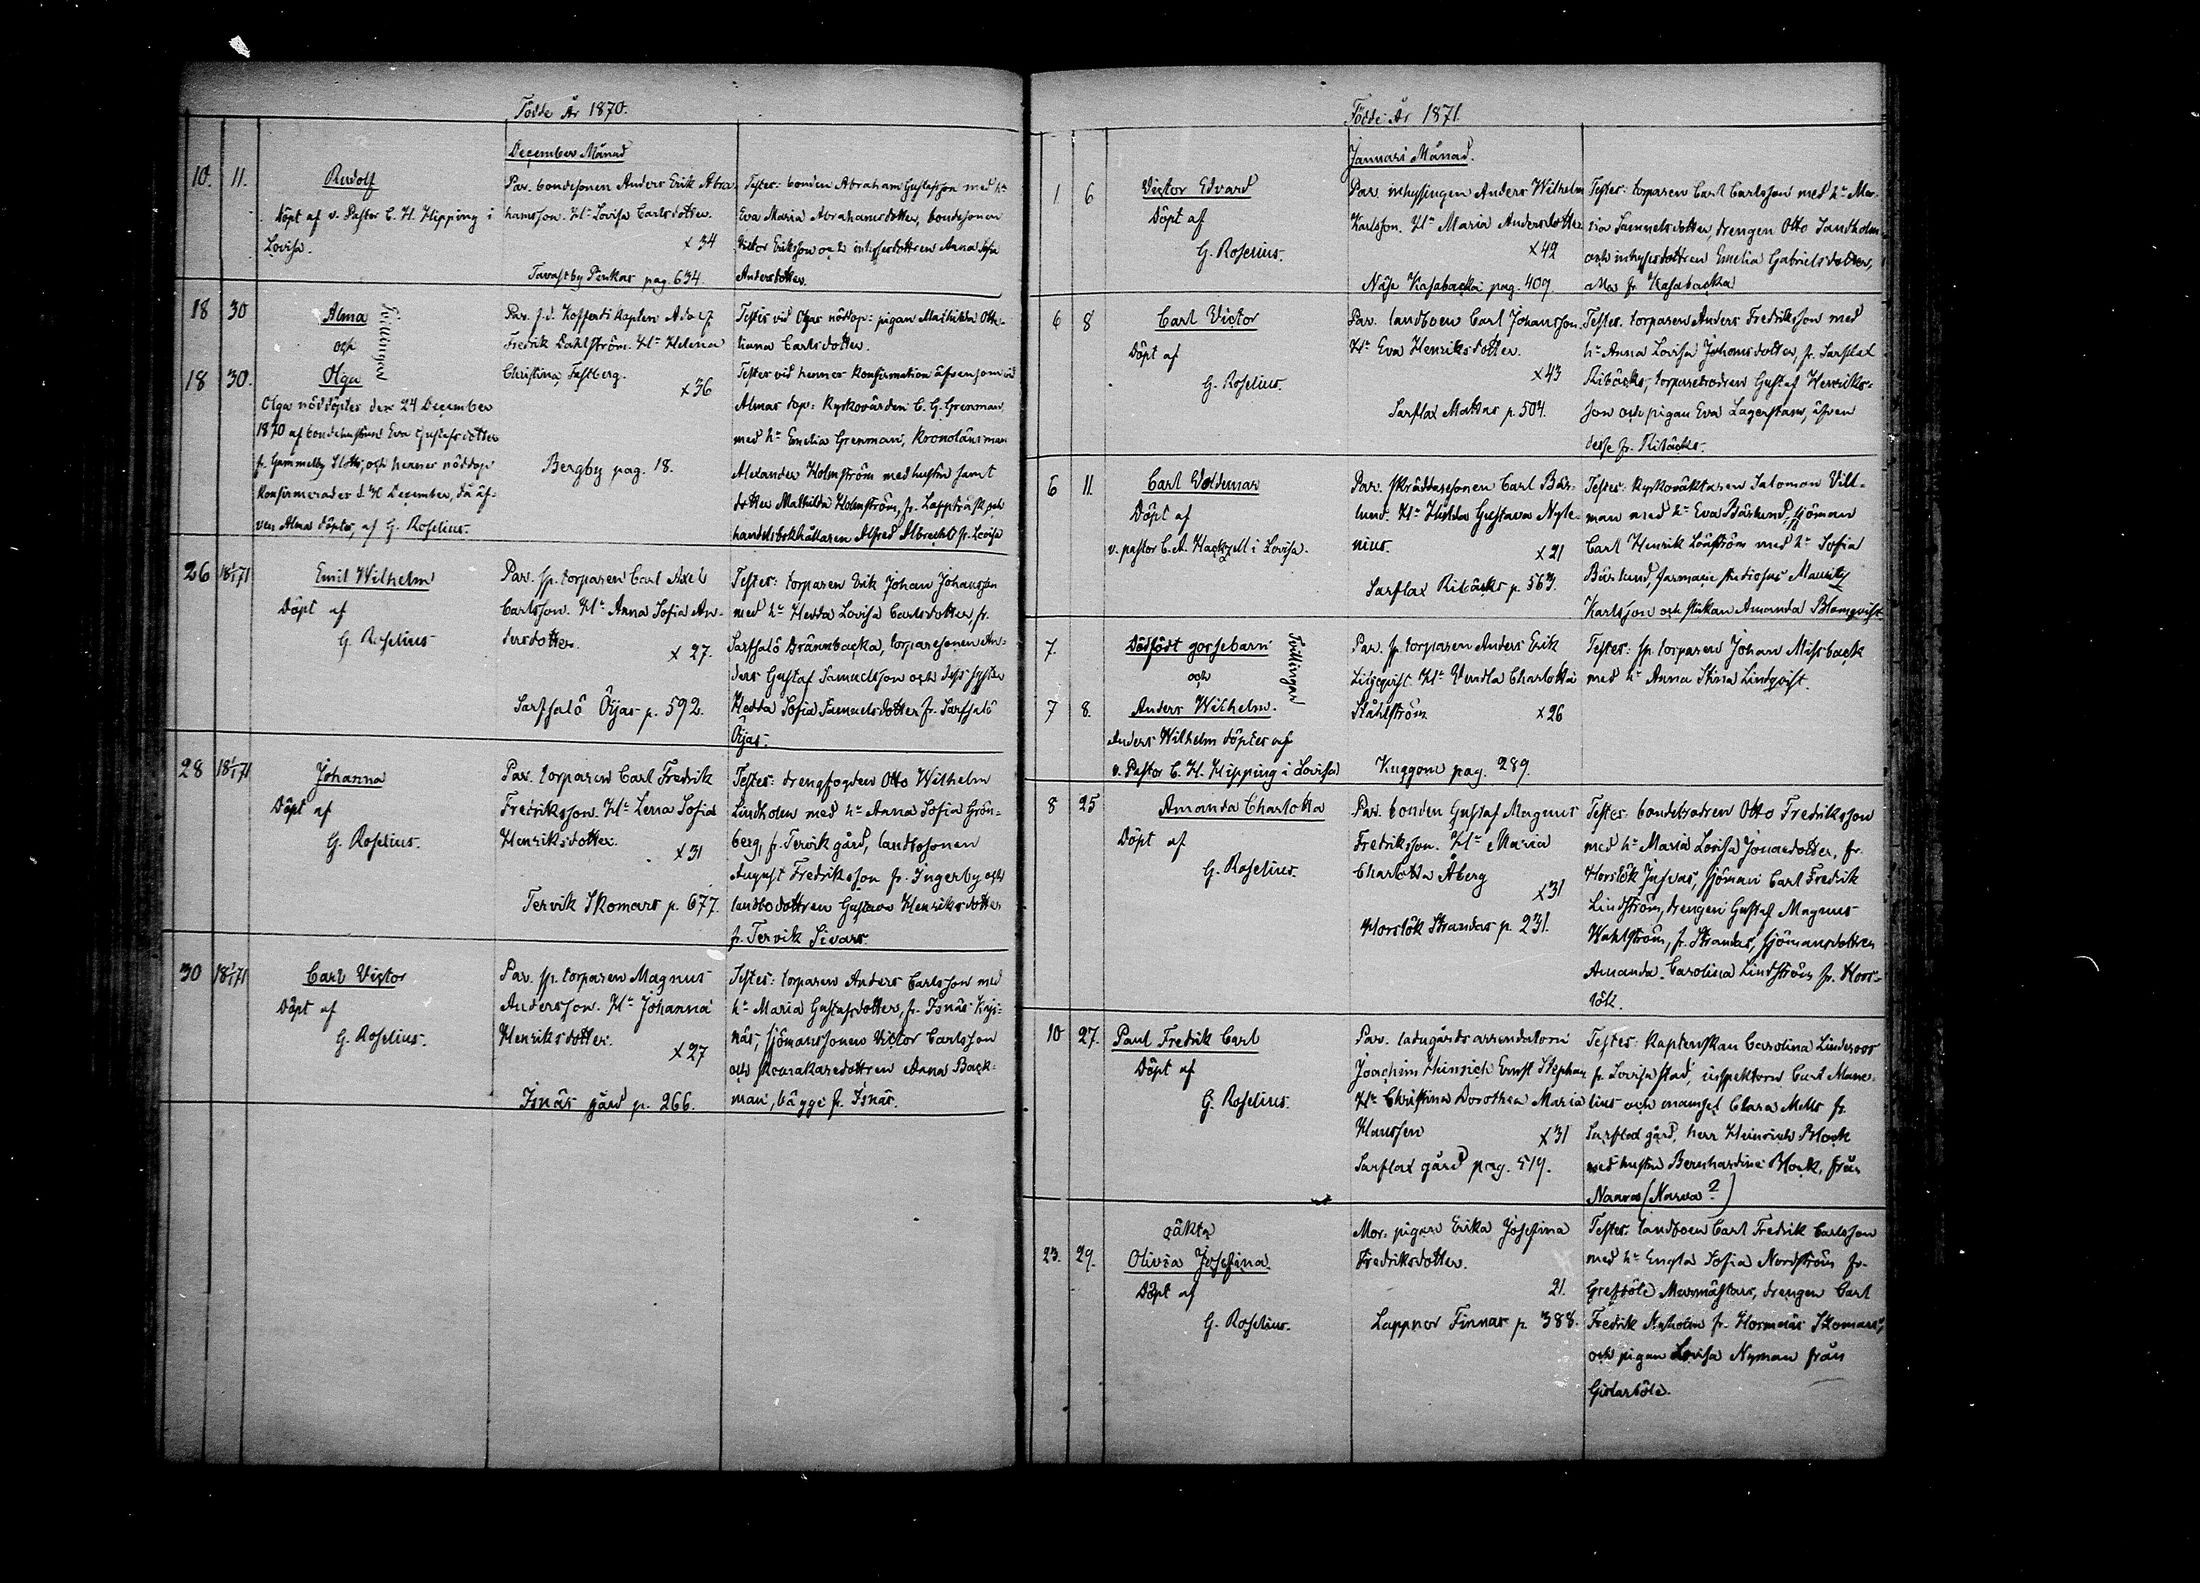 Födde År 1870.
December Månad
10. 11. Rudolf
Döpt af v. Pastor C. H. Hipping i
Lovisa.
Par. bondesonen Anders Erik Abra-
hamsson. H:u Lovisa Carlsdotter.
x 34
Tavastby Penkar pag. 634.
Testes: bonden Abraham Gustafsson med h:u
Eva Maria Abrahamsdotter, bondesonen
Victor Eriksson och inhysesdottren Anna Sofia
Andersdotter.
18 30 Alma
och
Tvillingar
18 30. Olga
Olga nöddöptes den 24 December
1870 af bondehustrun Eva Gustafsdotter
fr. Gammelby Slotts, och hennes nöddop
konfirmerades d. 30 December, då äf-
ven Alma döptes, af G. Roselius.
Par. f.d. Kofferdi Kapten Adolf
Fredrik Dahlström. H:u Helena
Christina Fastberg.
x 36
Bergby pag. 18.
Testes vid Olgas nöddop: pigan Mathilda Otte-
liana Carlsdotter.
Testes vid hennes konfirmation äfvensom vid
Almas dop: Kyrkovärden C. G. Grenman
med h:u Emelia Grenman, Kronolänsman
Alexander Holmström med hustru samt
dotter Mathilda Holmström, fr. Lappträsk och
handelsbokhållaren Alfred Albrecht fr. Lovisa
26 18 1/1 71 Emil Wilhelm
Döpt af
G. Roselius
Par. sp. torparen Carl Axel
Carlsson. H:u Anna Sofia An-
dersdotter.
x 27.
Sarfsalö Öijas p. 592.
Testes: torparen Erik Johan Johansson
med h:u Hedda Lovisa Carlsdotter, fr.
Sarfsalö Brännbacka, torparesonen An-
ders Gustaf Samuelsson och dess syster
Hedda Sofia Samuelsdotter fr. Sarfsalö
Öijas.
28 18 1/1 71 Johanna
Döpt af
G. Roselius.
Par. torparen Carl Fredrik
Fredriksson. H:u Lena Sofia
Henriksdotter.
x 31
Tervik Skomars p. 677.
Testes: drengfogden Otto Wilhelm
Lindholm med h:u Anna Sofia Grön-
berg, fr. Tervik gård, landbosonen
August Fredriksson fr. Ingerby och
landbodottren Gustava Henriksdotter
fr. Tervik Sivars.
30 18 1/1 71 Carl Victor
Döpt af
G. Roselius.
Par. sp. torparen Magnus
Andersson. H:u Johanna
Henriksdotter.
x 27
Isnäs gård p. 266.
Testes: torparen Anders Carlsson med
h:u Maria Gustafsdotter, fr. Isnäs
näs, sjömanssonen Victor Carlsson
och skomakaredottren Anna Back-
man, bägge fr. Isnäs.
Födde År 1871.
Januari Månad.
1 6 Victor Edvard
Döpt af
G. Roselius.
Par. inhysingen Anders Wilhelm
Karlsson. H:u Maria Andersdotter
x 42
Näse Kasabacka pag. 409.
Testes: torparen Carl Carlsson med h:u Ma-
ria Samuelsdotter, drengen Otto Sandholm
och inhysesdottren Emelia Gabrielsdotter,
alla fr. Kasabacka
6 8 Carl Victor
Döpt af
G. Roselius.
Par. landboen Carl Johansson.
H:u Eva Henriksdotter.
x 43
Sarflax Mattas p. 504.
Testes: torparen Anders Fredriksson med
h:u Anna Lovisa Johansdotter, fr. Sarflax
Ribäcks, torparebrodren Gustaf Henriks-
son och pigan Eva Lagerstam, äfven
desse fr. Ribäcks.
6 11. Carl Voldemar
Döpt af
v. pastor C. A. Hackzell i Lovisa.
Par. skräddaresonen Carl Bär-
lund. H:u Hulda Gustava Nyle-
nius.
x 21
Sarflax Ribäcks p. 563.
Testes: kyrkovaktaren Salomon Vill-
man med h:u Eva Bärlund, sjöman
Carl Henrik Löfström med h:u Sofia
Bärlund, farmacie studiosus Mauritz
Karlsson och flickan Amanda Blomqvist.
7. Dödfödt gossebarn
och
Tvillingar
7 8. Anders Wilhelm.
Anders Wilhelm döptes af
v. Pastor C. H. Hipping i Lovisa
Par. sp. torparen Anders Erik
Liljeqvist. H:u Vendla Charlotta
Ståhlström
x 26
Kuggom pag. 289.
Testes: sp. torparen Johan Missback
med h:u Anna Stina Lindqvist.
8 25 Amanda Charlotta
Döpt af
G. Roselius.
Par. bonden Gustaf Magnus
Fredriksson. H:u Maria
Charlotta Åberg
x 31
Horslök Strandas p. 231.
Testes: bondebrodren Otto Fredriksson
med h:u Maria Lovisa Jonasdotter, fr.
Horslök Jusvas, sjöman Carl Fredrik
Lindström, drengen Gustaf Magnus
Wahlström, fr. Strandas, sjömansdottren
Amanda Carolina Lindström fr. Hors-
lök.
10 27. Paul Fredrik Carl
Döpt af
G. Roselius.
Par. ladugårdsarrendatorn
Joachim Heinrich Ernst Stephan
H:u Christina Dorothea Maria
Hanssen
x 31
Sarflax gård pag. 519.
Testes: kaptenskan Carolina Linderoos
fr. Lovisa stad, inspektorn Curt Mane-
lius och mamsell Clara Mells fr.
Sarflax gård, herr Heinrich Block
med hustru Bernhardine Block, från
Naarva (Narva?)
oäkta
23. 29. Olivia Josefina.
Döpt af
G. Roselius.
Mor. pigan Erika Josefina
Fredriksdotter.
21.
Lappnor Finnas p. 388.
Testes: landboen Carl Fredrik Carlsson
med h:u Engla Sofia Nordström fr.
Grefböle Murmästars, drengen Carl
Fredrik Nyholm fr. Hormnäs Skomars,
och pigan Lovisa Nyman från
Gislarböle.